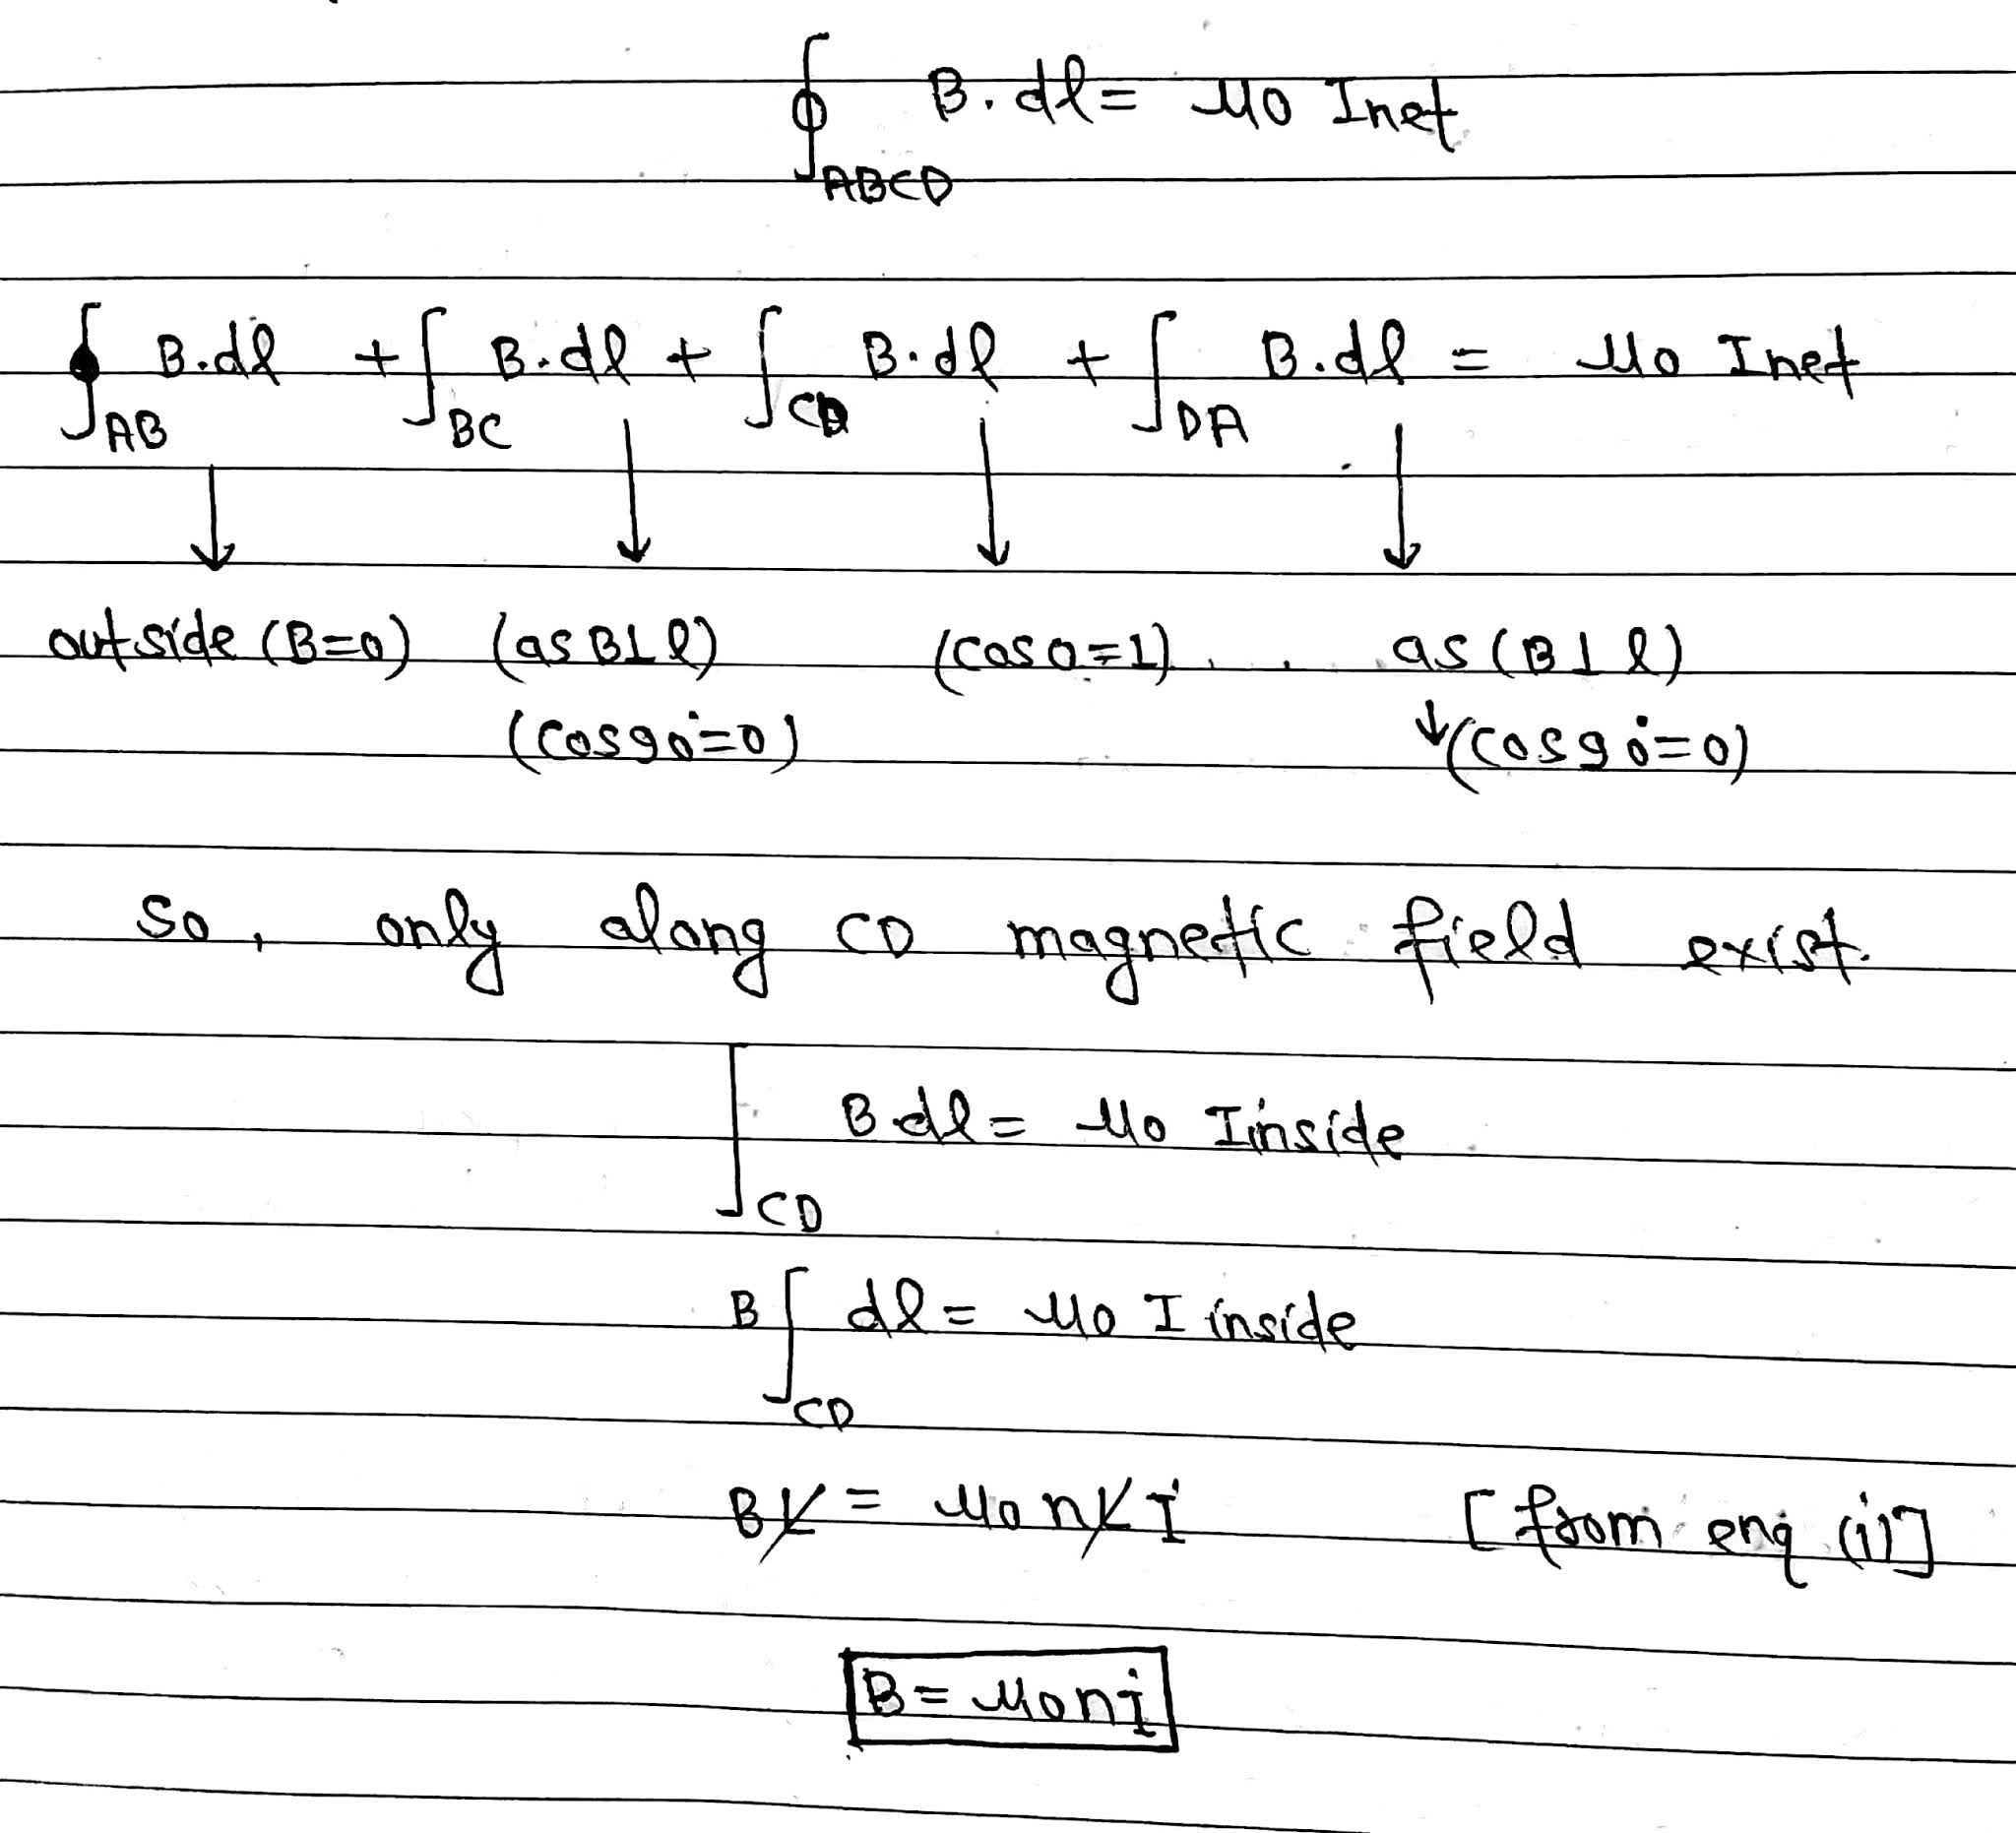 ∮ABCD B.dl = μ0 Inet
∮AB B.dl + ∫BC B.dl + ∫CD B.dl + ∫DA B.dl = μ0 Inet
↓ ↓ ↓ ↓
outside (B=0) (as B⊥l) (cos0=1) as (B⊥l)
(cos90°=0) ↓(cos90°=0)
So, only along CD magnetic field exist.
∫CD B.dl = μ0 Iinside
B∫CD dl = μ0 I inside
Bl = μ0nlI [from enq (i)]
B = μ0nI